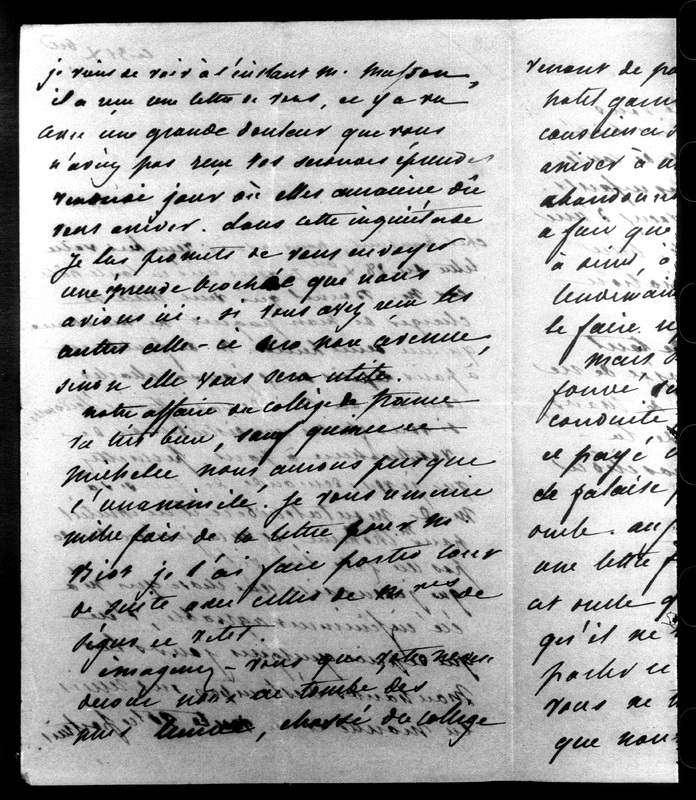 je viens de voir à l'instant M. Masson,
il a reçu une lettre de vous, et y a vu
avec une grande douleur que vous
n'aviez pas reçu vos secondes épreuves
jour où elles auraient dû
vous arriver. dans cette inquiétude
je lui promets de vous envoyer
une épreuve brochée que nous
avions ici. si vous avez reçu les
autres celle-ci sera non avenue,
sinon elle vous sera utile.
notre affaire du collège de france
va très bien, sauf quinet et
michelet nous aurons presque
l'unanimité. je vous remercie
mille fois de la lettre pour M.
Biot je l'ai fait porter tout
de suite avec celles de M. res de
Ségur et vitet.
imaginez-vous que votre neveu
nous tombe des
nues, chassé du collège
venant de pa
petit gam
conscience
arriver à
abandonn
a fait que
à
lendemain
le faire.
mais
conduite
et payé
de falaise
oncle. au
une lettre
cet oncle q
qu'il ne
parler et
vous ne
que nou